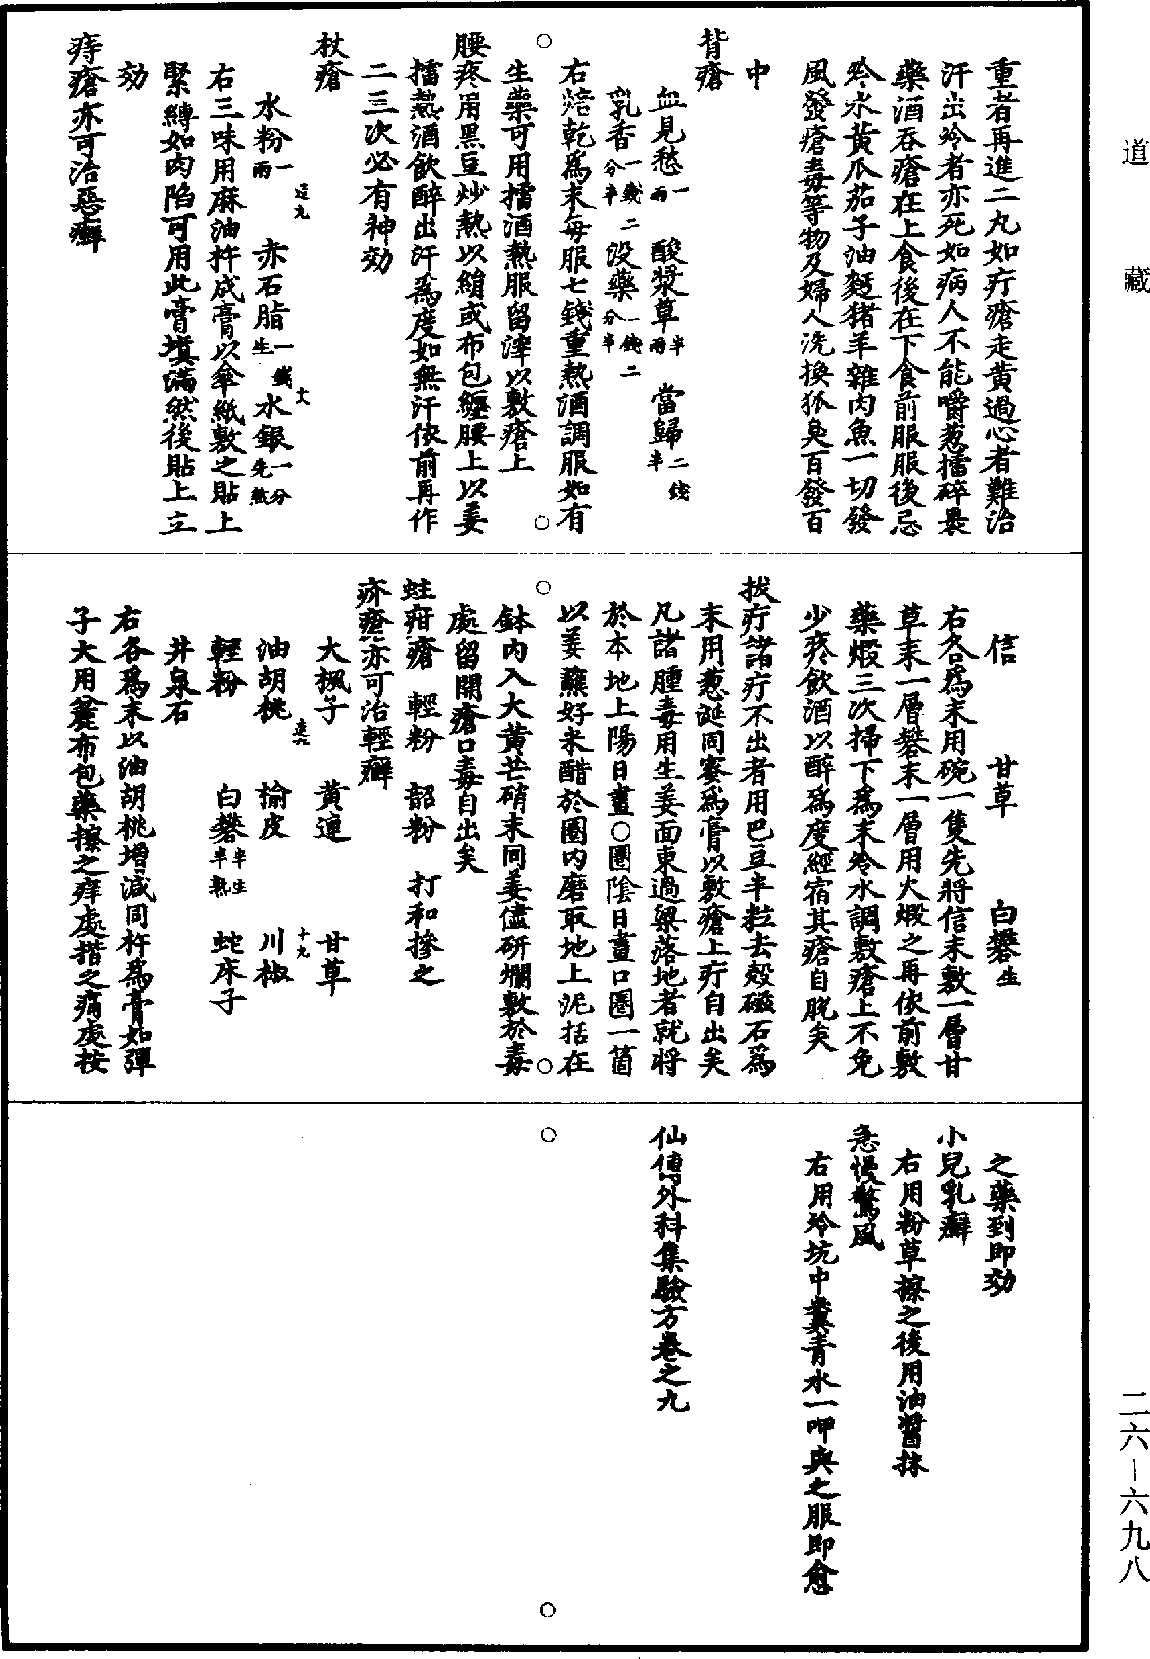 道藏
重者再進二丸如疔瘡走黃過心者難治
汗出冷者亦死如病人不能嚼葱擂碎裹
藥酒吞瘡在上食後在下食前服服後忌
冷水黃瓜茄子油麪猪羊雜肉魚一切發
風發瘡毒等物及婦人洗換狐臭百發百
中
背瘡
血見愁一兩 酸漿草半兩 當歸二錢半
乳香一錢二分半 没藥一錢二分半
右焙乾爲末每服七錢重熱酒調服如有
生藥可用擂酒熱服留滓以敷瘡上
腰疼用黑豆炒熱以絹或布包纏腰上以姜
擂熱酒飲醉出汗爲度如無汗依前再作
二三次必有神効
杖瘡
水粉一兩 赤石脂一錢生 水銀一分先熬
右三味用麻油杵成膏以傘紙敷之貼上
緊縛如肉陷可用此膏填滿然後貼上立
効
痔瘡亦可治惡癬
信 甘草 白礬生
右各爲末用碗一隻先將信末敷一層甘
草末一層礬末一層用火煅之再依前敷
藥煅三次掃下爲末冷水調敷瘡上不免
少疼飲酒以醉爲度經宿其瘡自脫矣
拔疔諸疔不出者用巴豆半粒去殻磁石爲
末用葱涎同蜜爲膏以敷瘡上疔自出矣
凡諸腫毒用生姜面東過梁落地者就將
於本地上陽日畫○圈陰日畫口圈一箇
以姜蘸好米醋於圈内磨取地上泥括在
鉢内入大黃芒硝末同姜儘研爛敷於毒
處留開瘡口毒自出矣
蛀疳瘡 輕粉 韶粉 打和摻之
疥瘡亦可治輕癬
大楓子 黃連 甘草
油胡桃 榆皮 川椒
輕粉 白礬半生半熟 蛇床子
井泉石
右各爲末以油胡桃增減同杵爲膏如彈
子大用麄布包藥擦之痒處揩之痛處按
之藥到即効
小兒乳癬
右用粉草擦之後用油醬抹
急慢驚風
右用冷坑中糞青水一呷與之服即愈
仙傳外科集驗方卷之九
二六—六九八